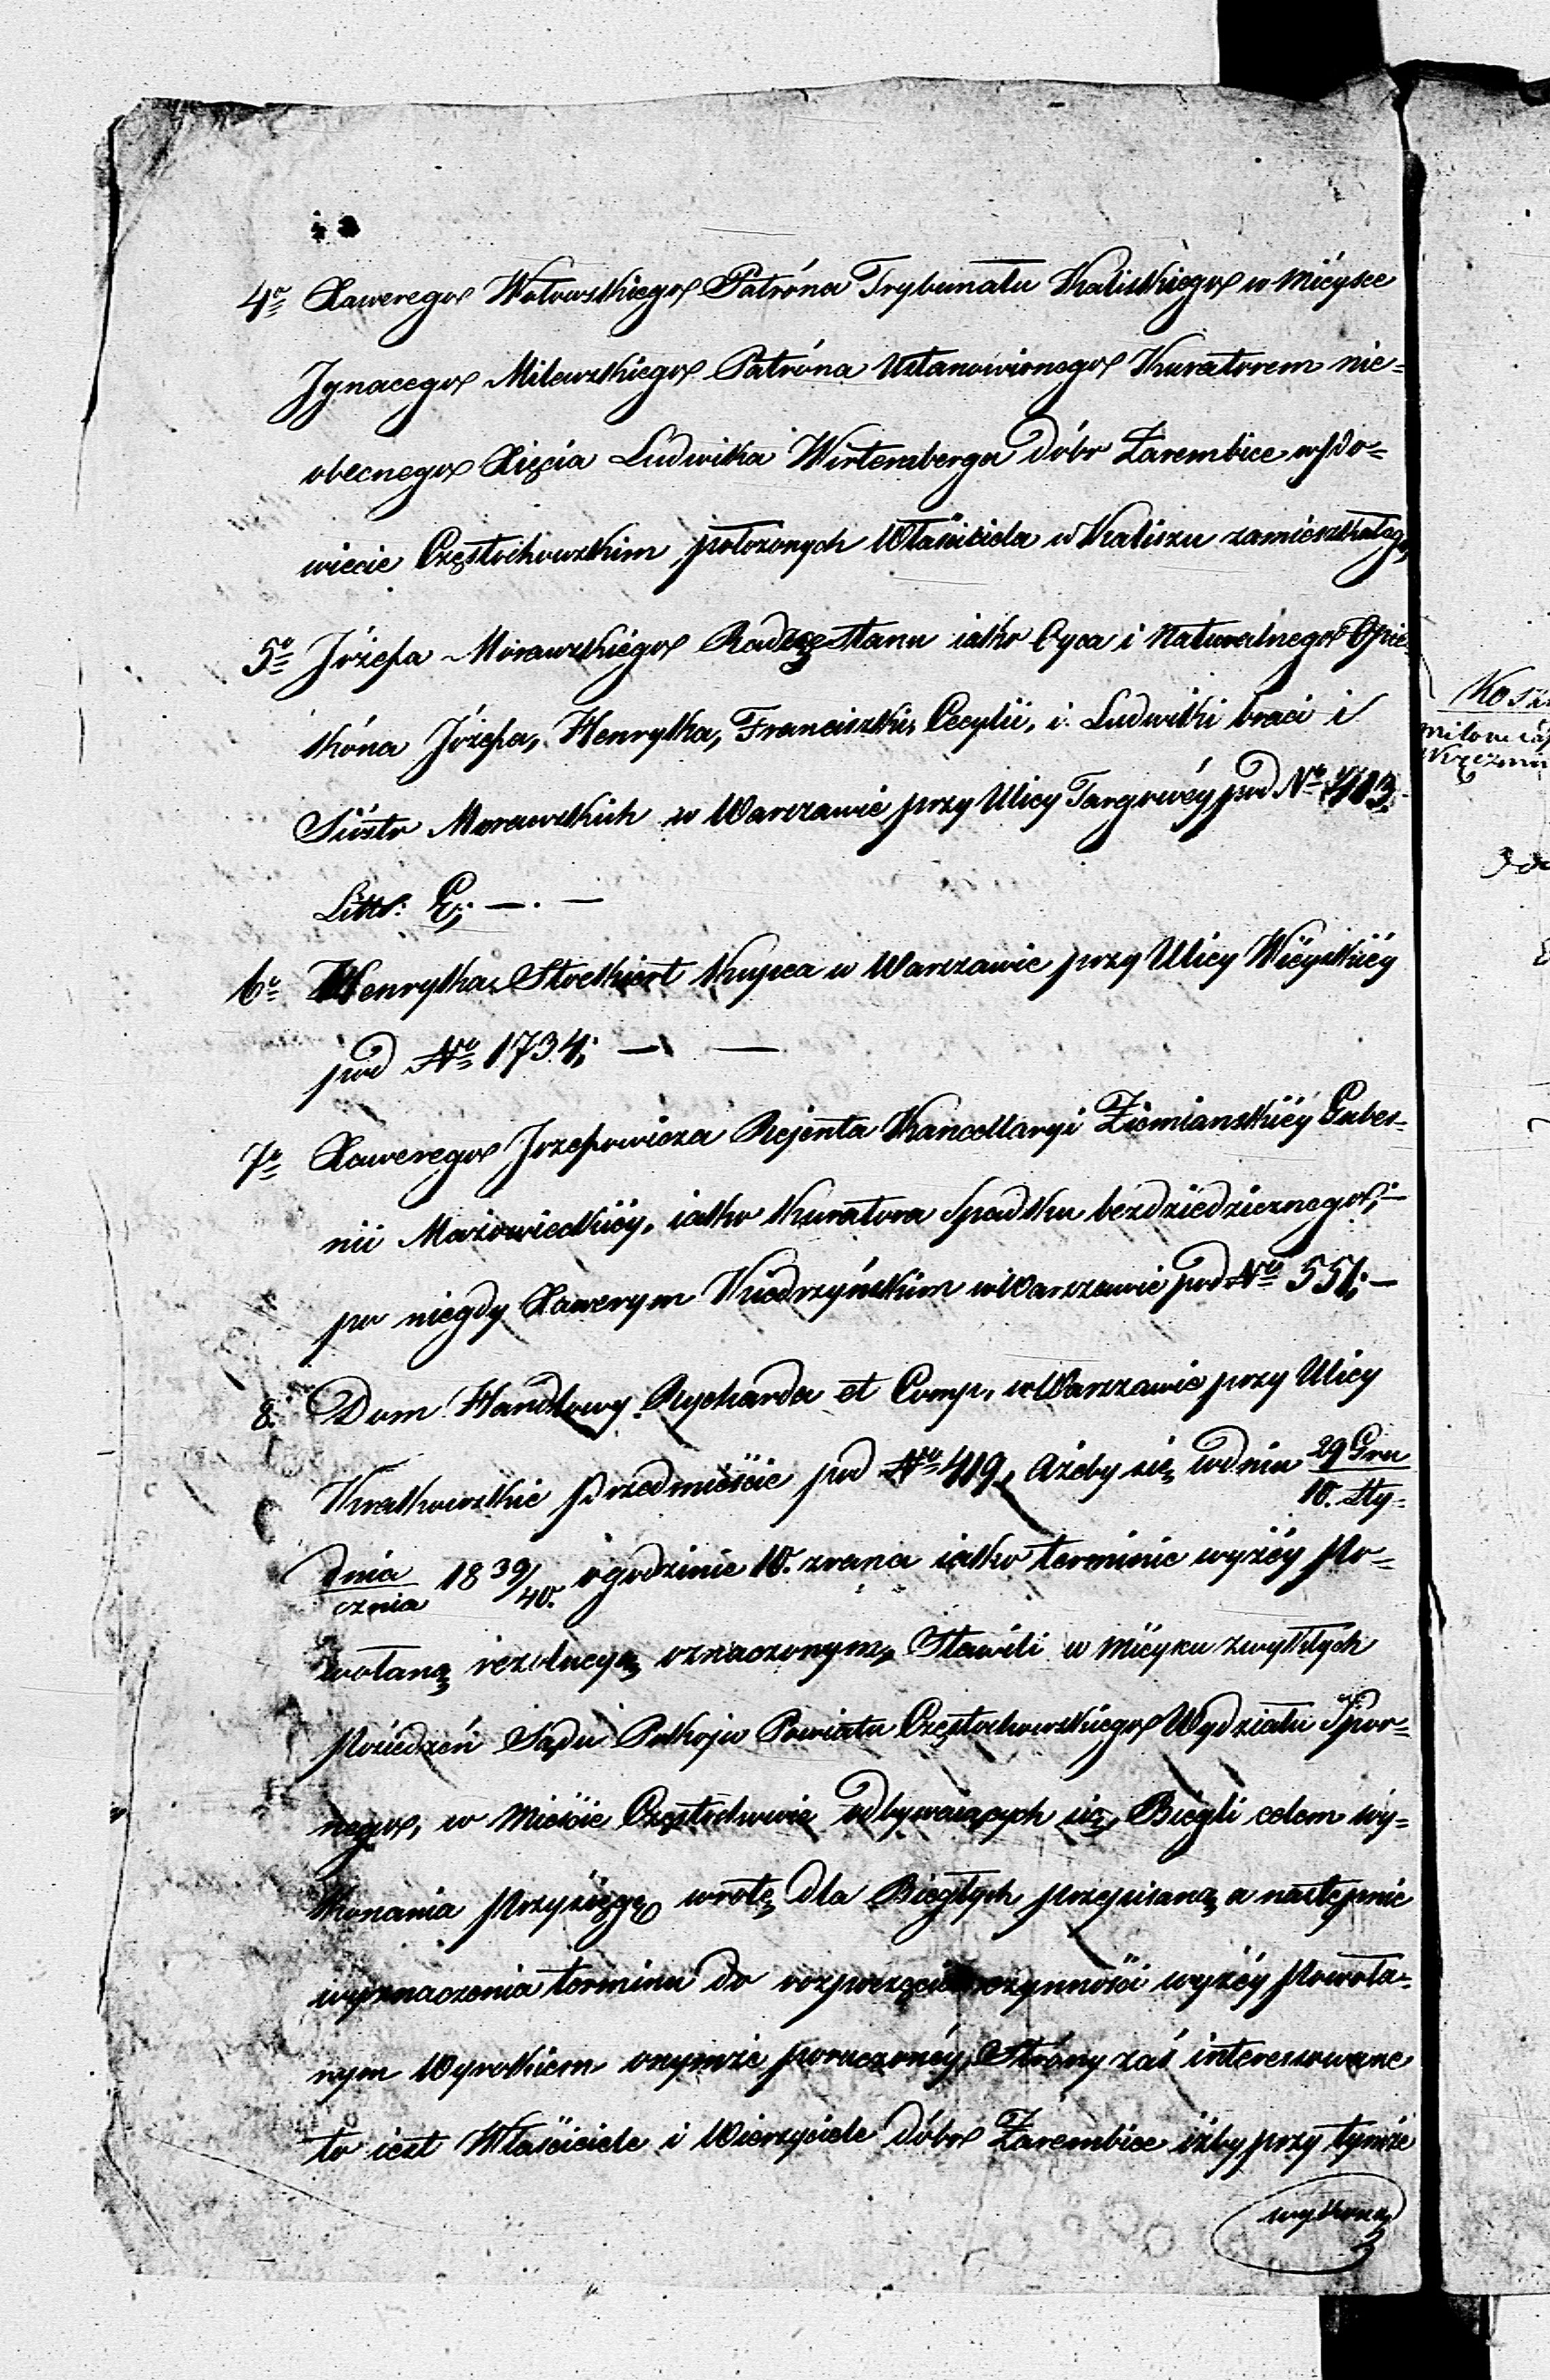 4o Xawerego Wołowskiego Patróna Trybunału Kaliskiego w Mieysce
Jgnacego Milewskiego Patróna Ustanowionego Kuratorem nie=
obecnego Xięcia Ludwika Wirtemberga dóbr Zarembice w Po=
wiecie Częstochowskim położonych Właściciela w Kaliszu zamieszkałego,
5o Józefa Morawskiego Radzcę Stanu iako Oyca i Naturalnego Opie=
kóna Józefa, Henryka, Franciszki, Cecylii, i Ludwiki braci i
Sióstr Morawskich w Warszawie przy Ulicy Targowéy pod No 413
Littr: E; —. —
6o Henryka Stockiert Kupca w Warszawie przy Ulicy Wieyskiéy
pod No 1734; — —
7o Xawerego Jozefowicza Rejenta Kancellaryi Ziemianskiéy Guber=
nii Mazowieckiéy, iako Kuratora Spadku bezdziedzicznego;—
po niegdy Xawerym Kiedrzyńskim w Warszawie pod No 551;—
8. Dom Handlowy Rycharda et Comp, w Warszawie przy Ulicy
Krakowskie Przedmieście pod No 419, Ażeby się w dniu 29 Gru
10. Sty=
dnia
cznia 18 39/40. o godzinie 10. zrana iako terminie wyżéy Po=
wołaną rezolucyą oznaczonym, Stawili w Mieyscu zwykłych
Posiedzeń Sądu Pokoju Powiatu Częstochowskiego Wydziału Spor=
nego, w Mieście Częstochowie odbywaiących się, Biegli celem wy=
konania Przysięgę w rotę dla Biegłych przepisaną a następnie
wyznaczenia terminu do rozpoczęcia czynności wyżéy Powoła=
nym Wyrokiem onymże poruczonéy, Stróny zaś interessowane
to iest Właściciele i Wierzyciele dóbr Zarembice iżby przy tymże
wykona